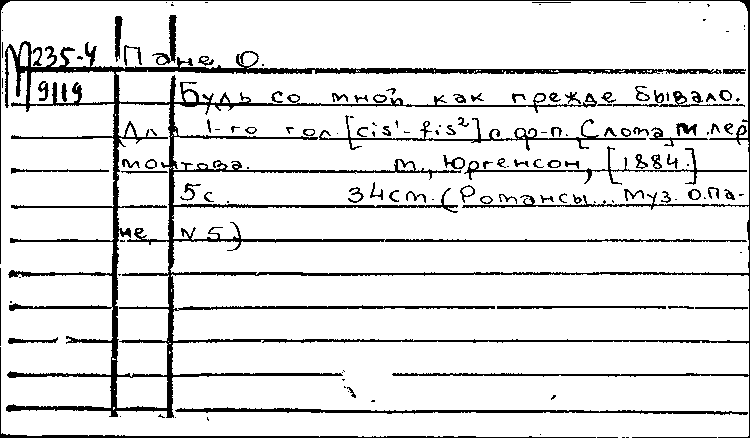 М235-4 Пане, О.
9119 Будь со мной как прежде бывало.
Для 1-го гол. [cis¹-fis²] с ф-п. [Слова М. Лер
монтова. М., Юргенсон, [1884.]
5 с. 34 см. (Романсы... муз. О. Па-
не, N 5.)